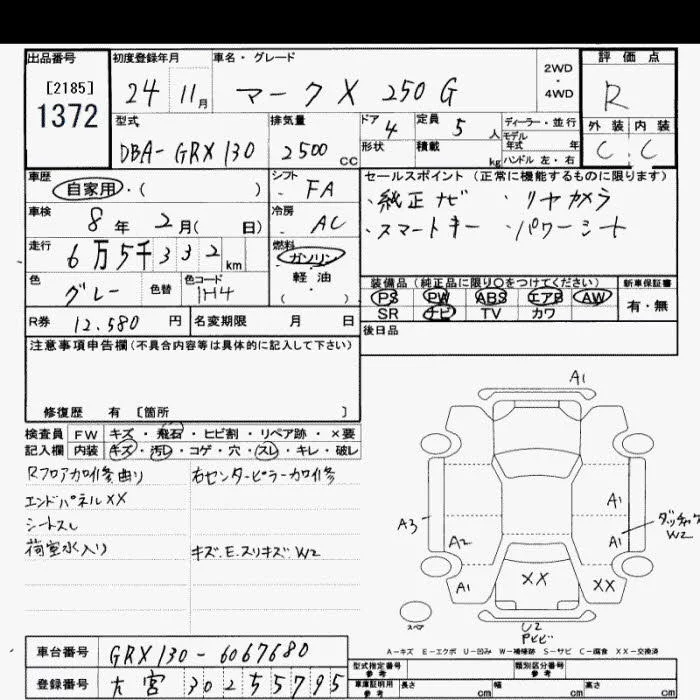 出品番号 初度登録年月 車名・グレード 2WD・4WD 評価点
[2185]
1372
24 11月 マークX 250G R
型式 排気量 ドア 4 定員 5人 ディーラー・並行 外装 内装
モデル年式 年
DBA-GRX130 2500cc 形状 積載 kg ハンドル 左・右 C C
車歴 自家用・( )
シフト FA
セールスポイント(正常に機能するものに限ります)
・純正ナビ ・リヤカメラ
・スマートキー ・パワーシート
車検 8年2月( 日)
冷房 AC
走行 6万5千332km
燃料 ガソリン・軽油・( )
色 グレー 色替 色コード 1H4
装備品(純正品に限り○をつけてください) 新車保証書
PS PW ABS エアB AW 有・無
SR ナビ TV カワ
R券 12,580円 名変期限 月 日
後日品
注意事項申告欄(不具合内容等は具体的に記入して下さい)
修復歴 有 [箇所 ]
検査員 FW キズ・飛石・ヒビ割・リペア跡・×要
記入欄 内装 キズ・汚レ・コゲ・穴・スレ・キレ・破レ
Rフロアカロ修曲り 右センターピラーカロ修
エンドパネルXX
シートスレ
荷室水入り キズ.E.スリキズW2
A1
A3
A2
A1
A1
A1
ダッチャクW2
XX
XX
U2
スペア
A-キズ E-エクボ U-凹み W-補修跡 S-サビ C-腐食 XX-交換済
車台番号 GRX130-6067680
登録番号 大宮 302 5 5795
型式指定番号 参考 類別区分番号 参考
車庫証明用 参考 長さ cm 幅 cm 高さ cm